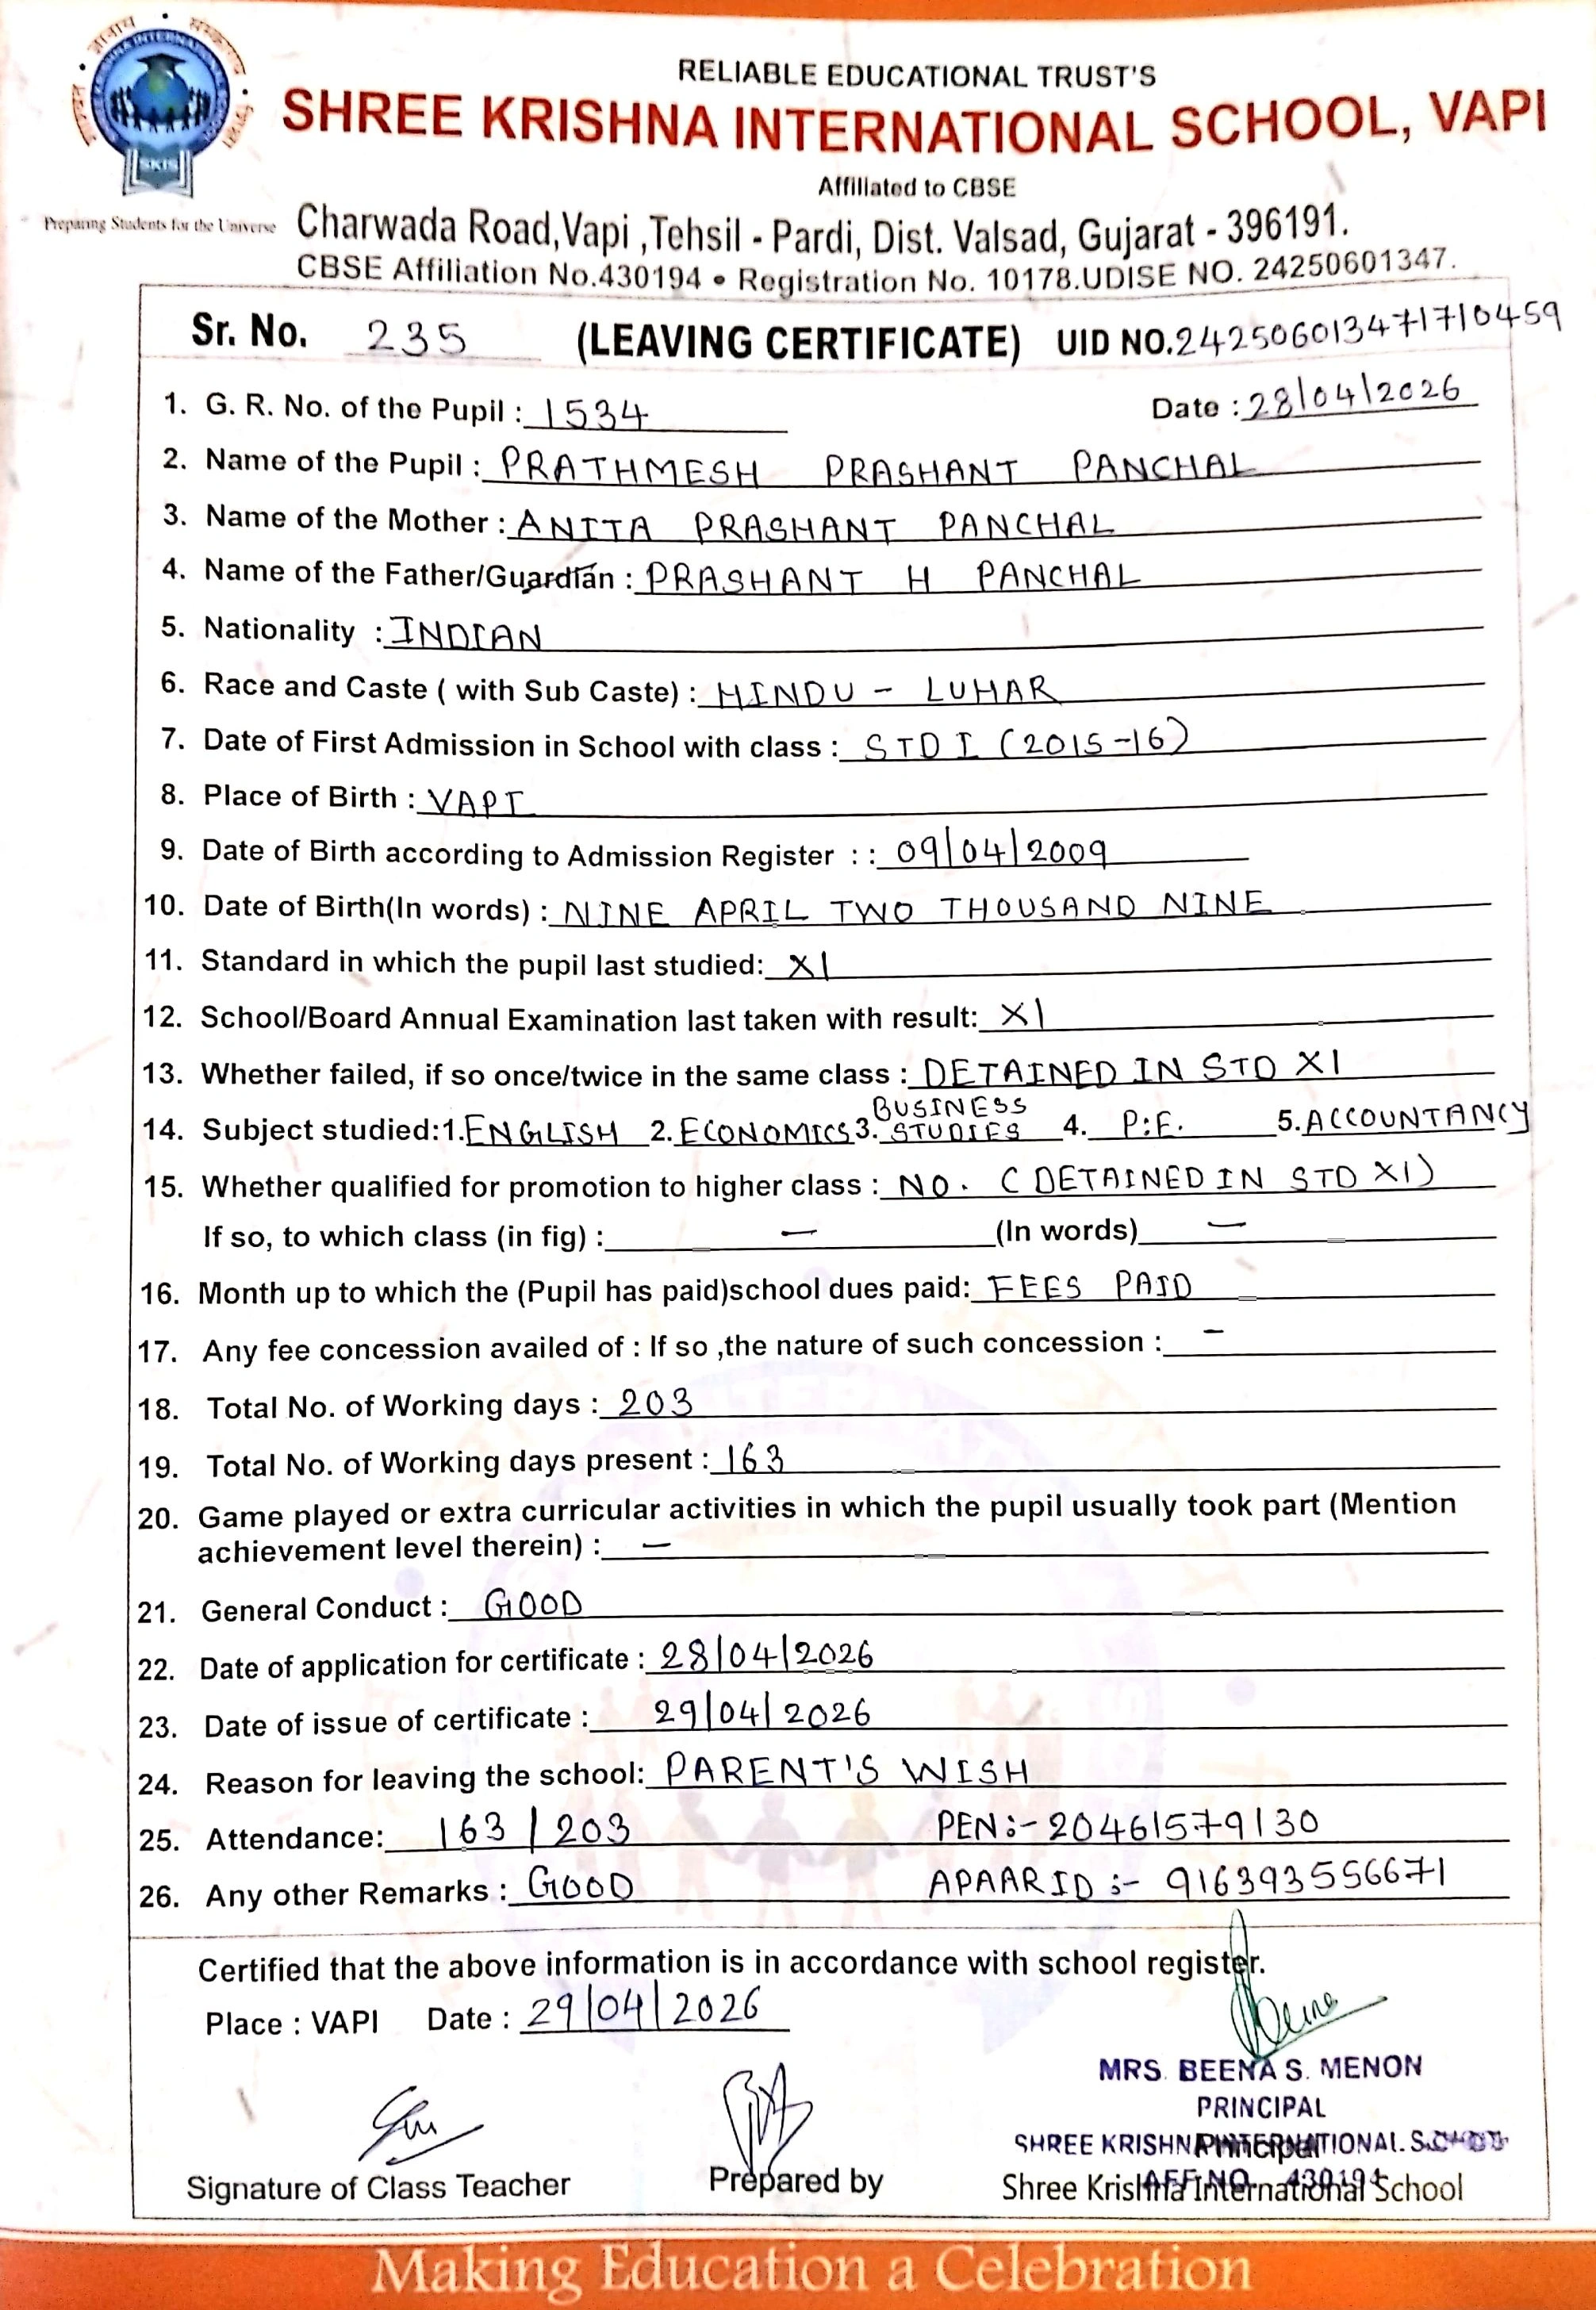 RELIABLE EDUCATIONAL TRUST'S
SHREE KRISHNA INTERNATIONAL SCHOOL, VAPI
Affiliated to CBSE
SKIS
Preparing Students for the Universe
Charwada Road,Vapi ,Tehsil - Pardi, Dist. Valsad, Gujarat - 396191.
CBSE Affiliation No.430194 • Registration No. 10178.UDISE NO. 24250601347.
Sr. No. 235 (LEAVING CERTIFICATE) UID NO.242506013471710459
1. G. R. No. of the Pupil : 1534 Date : 28/04/2026
2. Name of the Pupil : PRATHMESH PRASHANT PANCHAL
3. Name of the Mother : ANITA PRASHANT PANCHAL
4. Name of the Father/Guardian : PRASHANT H PANCHAL
5. Nationality : INDIAN
6. Race and Caste ( with Sub Caste) : HINDU - LUHAR
7. Date of First Admission in School with class : STD I (2015-16)
8. Place of Birth : VAPI
9. Date of Birth according to Admission Register : : 09/04/2009
10. Date of Birth(In words) : NINE APRIL TWO THOUSAND NINE
11. Standard in which the pupil last studied: XI
12. School/Board Annual Examination last taken with result: XI
13. Whether failed, if so once/twice in the same class : DETAINED IN STD XI
14. Subject studied:1.ENGLISH 2.ECONOMICS 3. BUSINESS STUDIES 4. P.E. 5.ACCOUNTANCY
15. Whether qualified for promotion to higher class : NO. (DETAINED IN STD XI)
If so, to which class (in fig) : — (In words) —
16. Month up to which the (Pupil has paid)school dues paid: FEES PAID
17. Any fee concession availed of : If so ,the nature of such concession : -
18. Total No. of Working days : 203
19. Total No. of Working days present : 163
20. Game played or extra curricular activities in which the pupil usually took part (Mention
achievement level therein) : —
21. General Conduct : GOOD
22. Date of application for certificate : 28/04/2026
23. Date of issue of certificate : 29/04/2026
24. Reason for leaving the school: PARENT'S WISH
25. Attendance: 163 / 203 PEN:- 20461579130
26. Any other Remarks : GOOD APAAR ID :- 916393556671
Certified that the above information is in accordance with school register.
Place : VAPI Date : 29/04/2026
MRS. BEENA S. MENON
PRINCIPAL
SHREE KRISHNA INTERNATIONAL SCHOOL
Principal
AFF.NO. 430194
Signature of Class Teacher Prepared by Shree Krishna International School
Making Education a Celebration